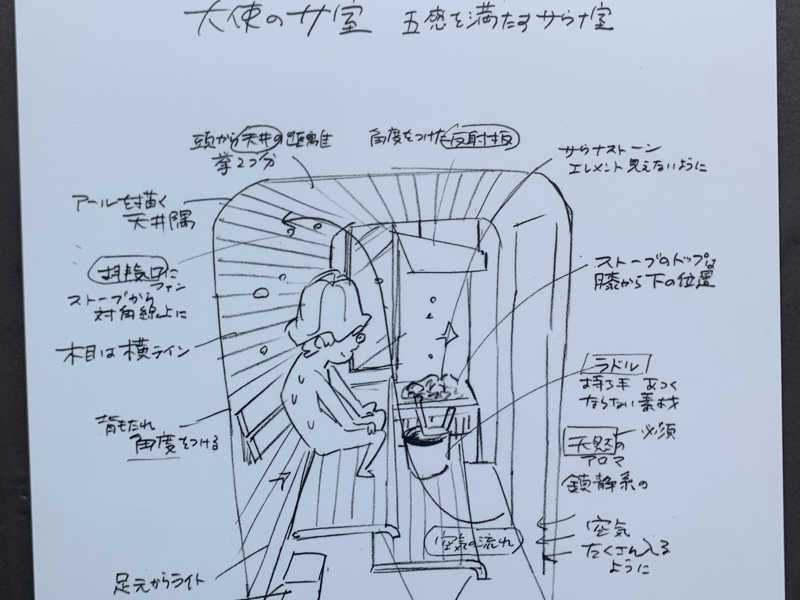 天使のサ室 五感を満たすサウナ室
頭から天井の距離は
拳2つ分
角度をつけた反射板
サウナストーン
エレメント見えないように
アールを描く
天井隅
排気口に
ファン
ストーブから
対角線上に
ストーブのトップは
膝から下の位置
木目は横ライン
ラドル
持ち手 あつく
ならない素材
背もたれ
角度をつける
天然の
必須
アロマ
鎮静系の
空気の流れ
空気
たくさん入る
ように
足元からライト